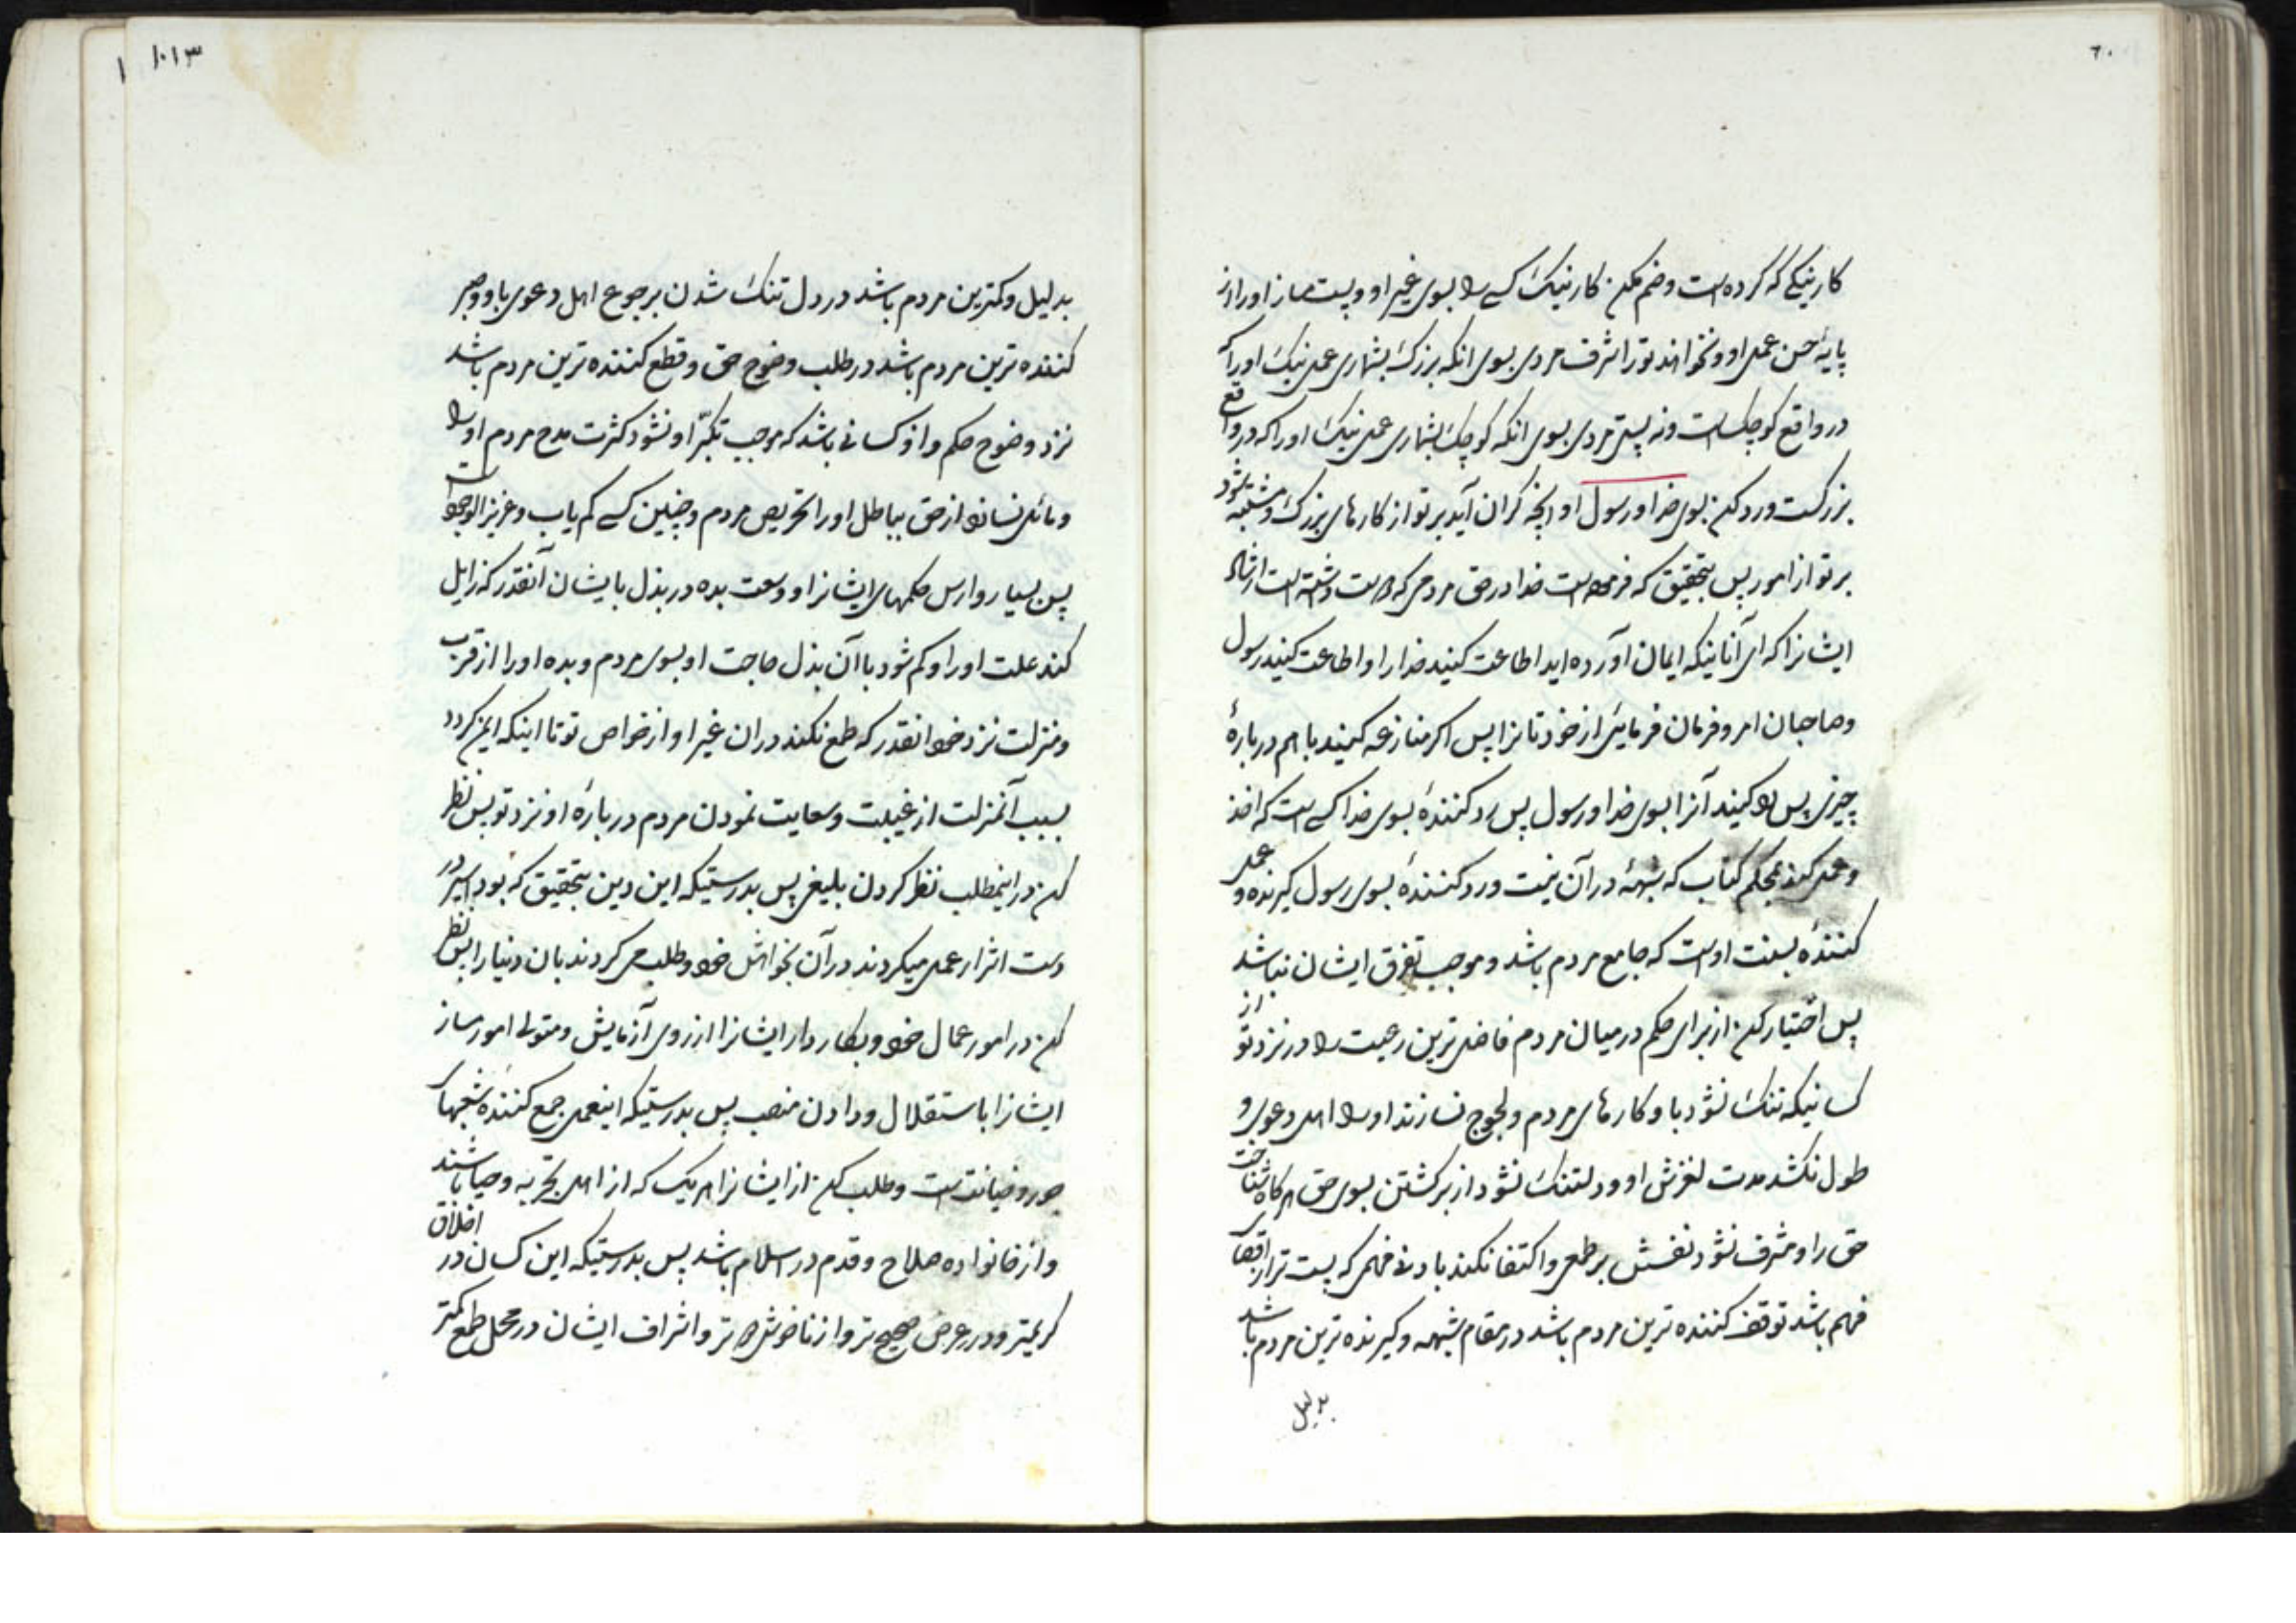 ٦٠
کار نیکی که کرده است و ضم مکن کار نیک کسی را بسوی غیر او و پست مساز او را از
پایهٔ حسن عمل او و نخواهد تو را شرف مردی بسوی انکه بزرک بشماری عمل نیک او را که
در واقع کوچک است و نه پستی مردی بسوی انکه کوچک بشماری عمل نیک او را که در واقع
بزرکست و رد کن بسوی خدا و رسول او انچه کران آید بر تو از کارهای بزرک و مشتبه شود
بر تو از امور پس بتحقیق که فرموده است خدا در حق مردمی که دوست داشته است ارشاد
ایشانرا که ای آنانیکه ایمان آورده اید اطاعت کنید خدا را و اطاعت کنید رسول
و صاحبان امر و فرمان فرمایی از خودتانرا پس اکر منازعه کنید با هم دربارهٔ
چیزی پس رد کنید آنرا بسوی خدا و رسول پس رد کنندهٔ بسوی خدا کسی است که اخذ
و عمل کند بمحکم کتاب که شبههٔ در آن نیست و رد کنندهٔ بسوی رسول کیرنده و عمل
کنندهٔ بسنت اوست که جامع مردم باشد و موجب تفرق ایشان نباشد
پس اختیار کن از برای حکم در میان مردم فاضل ترین رعیت را در نزد تو از
کسانیکه تنک نشود باو کارهای مردم و لجوج نسازند او را اهل دعوی و
طول نکشد مدت لغزش او و دلتنک نشود از برکشتن بسوی حق هرکاه شناخت
حق را و مشرف نشود نفسش بر طمعی و اکتفا نکند بادنی فهمی که پست تر از اقصای
فهم باشد توقف کننده ترین مردم باشد در مقام شبهه و کیرنده ترین مردم باشد
بدلیل
١٠١٣
١
بدلیل و کمترین مردم باشد در دل تنک شدن برجوع اهل دعوی باو و صبر
کننده ترین مردم باشد در طلب وضوح حق و قطع کننده ترین مردم باشد
نزد وضوح حکم و از کسانی باشد که موجب تکبّر او نشود کثرت مدح مردم او را
و مائل نسازد از حق بباطل او را تحریص مردم و چنین کسی کم یاب و عزیز الوجود است
پس بسیار وارس حکمهای ایشانرا و وسعت بده در بذل بایشان آنقدر که زایل
کند علت او را و کم شود با آن بذل حاجت او بسوی مردم و بده او را از قرب
و منزلت نزد خود انقدر که طمع نکند در ان غیر او از خواص تو تا اینکه ایمن کردد
بسبب آنمنزلت از غیبت و سعایت نمودن مردم دربارهٔ او نزد تو پس نظر
کن در اینمطلب نظر کردن بلیغی پس بدرستیکه این دین بتحقیق که بود اسیر در
دست اشرار عمل میکردند در آن بخواهش خود و طلب می کردند بان دنیا را پس نظر
کن در امور عمال خود و بکار دار ایشانرا از روی آزمایش و متولی امور مساز
ایشانرا باستقلال و دادن منصب پس بدرستیکه اینعمل جمع کنندهٔ شعبهای
جور و خیانتست و طلب کن از ایشانرا هر یک که از اهل تجربه و حیا باشند
و از خانواده صلاح و قدم در اسلام باشد پس بدرستیکه این کسان در اخلاق
کریمتر و در عرض صحیح تر و از ناخوشی دورتر و اشراف ایشان در محل طمع کمتر